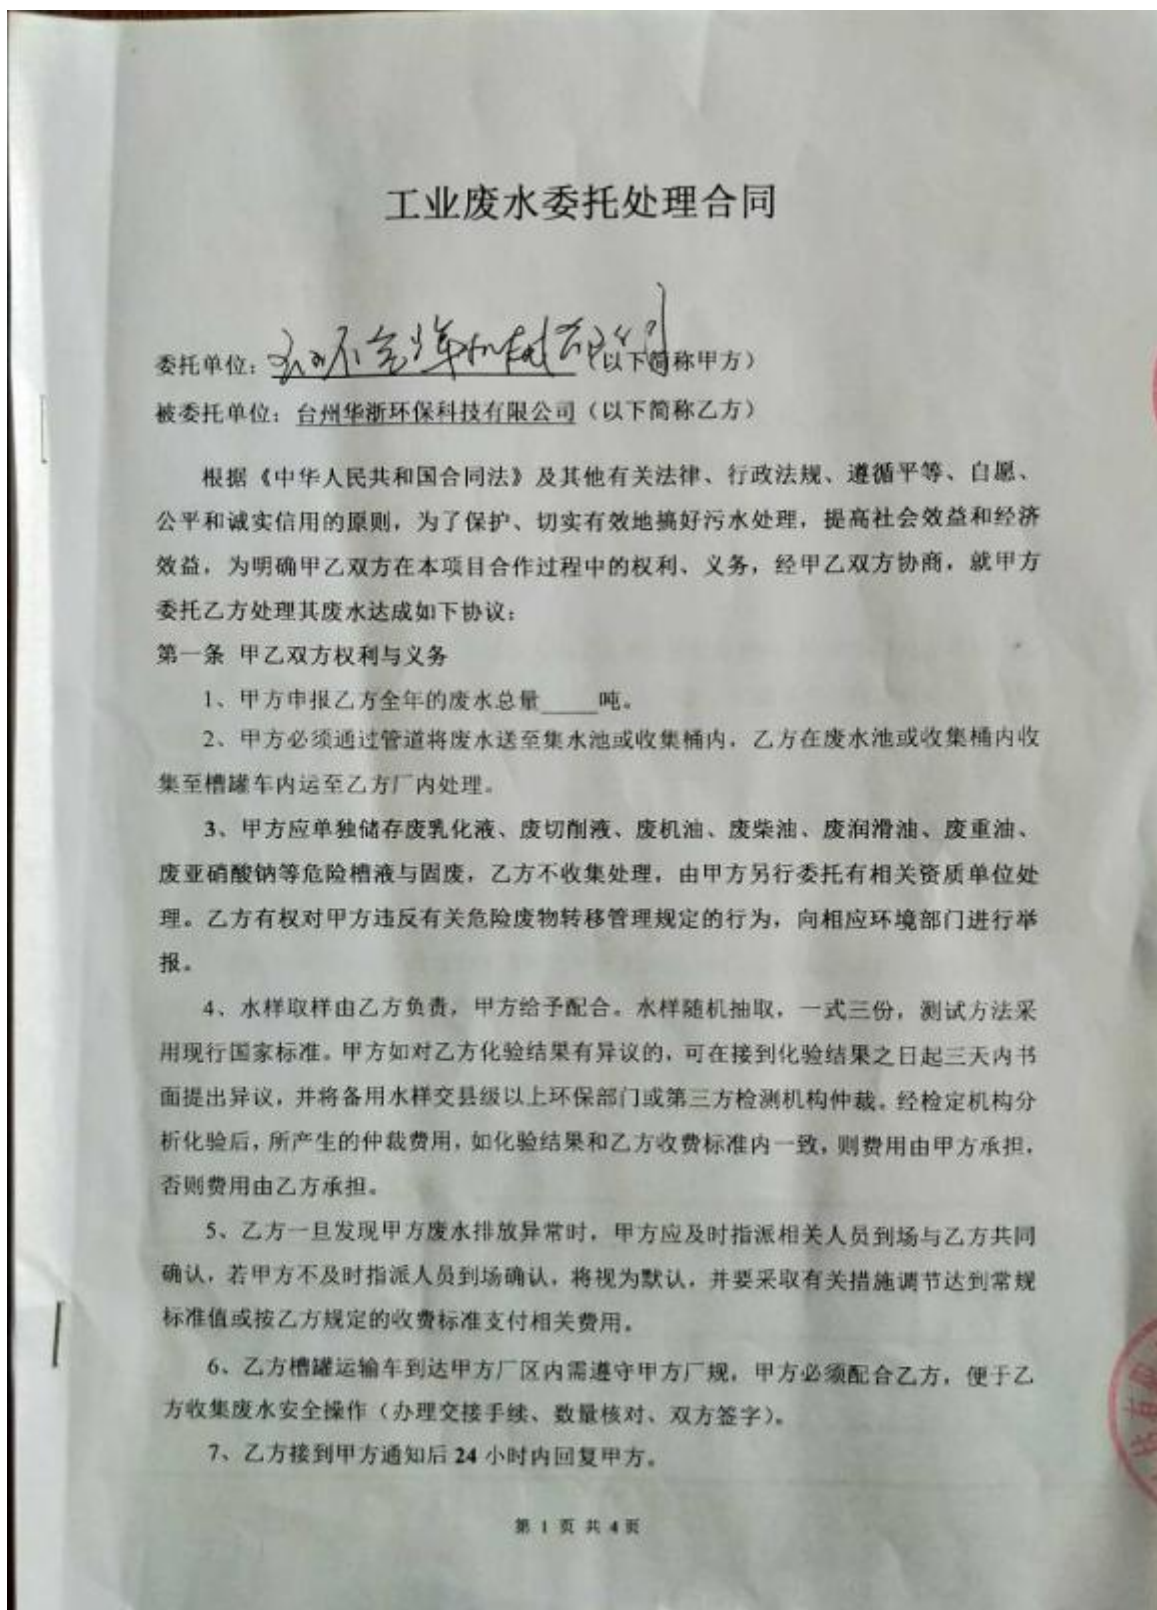 工业废水委托处理合同
委托单位：机械有限公司（以下简称甲方）
被委托单位：台州华浙环保科技有限公司（以下简称乙方）
根据《中华人民共和国合同法》及其他有关法律、行政法规、遵循平等、自愿、
公平和诚实信用的原则，为了保护、切实有效地搞好污水处理，提高社会效益和经济
效益，为明确甲乙双方在本项目合作过程中的权利、义务，经甲乙双方协商，就甲方
委托乙方处理其废水达成如下协议：
第一条 甲乙双方权利与义务
1、甲方申报乙方全年的废水总量_____吨。
2、甲方必须通过管道将废水送至集水池或收集桶内，乙方在废水池或收集桶内收
集至槽罐车内运至乙方厂内处理。
3、甲方应单独储存废乳化液、废切削液、废机油、废柴油、废润滑油、废重油、
废亚硝酸钠等危险槽液与固废，乙方不收集处理，由甲方另行委托有相关资质单位处
理。乙方有权对甲方违反有关危险废物转移管理规定的行为，向相应环境部门进行举
报。
4、水样取样由乙方负责，甲方给予配合。水样随机抽取，一式三份，测试方法采
用现行国家标准。甲方如对乙方化验结果有异议的，可在接到化验结果之日起三天内书
面提出异议，并将备用水样交县级以上环保部门或第三方检测机构仲裁。经检定机构分
析化验后，所产生的仲裁费用，如化验结果和乙方收费标准内一致，则费用由甲方承担，
否则费用由乙方承担。
5、乙方一旦发现甲方废水排放异常时，甲方应及时指派相关人员到场与乙方共同
确认，若甲方不及时指派人员到场确认，将视为默认，并要采取有关措施调节达到常规
标准值或按乙方规定的收费标准支付相关费用。
6、乙方槽罐运输车到达甲方厂区内需遵守甲方厂规，甲方必须配合乙方，便于乙
方收集废水安全操作（办理交接手续、数量核对、双方签字）。
7、乙方接到甲方通知后 24 小时内回复甲方。
第 1 页 共 4 页